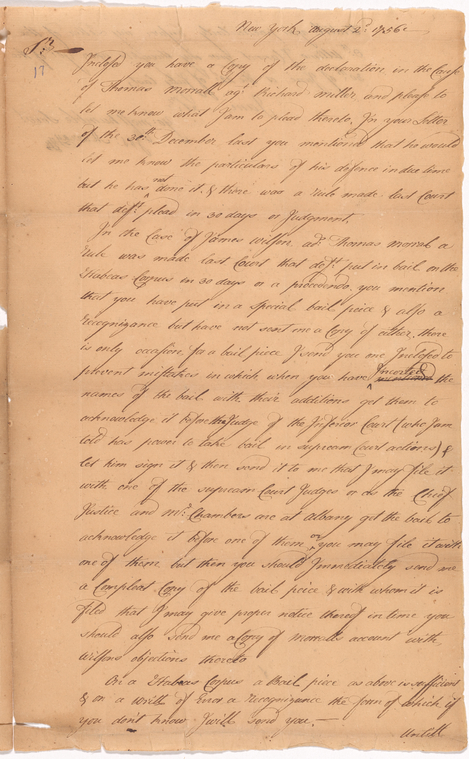 New York August 2d. 1756
Sr.
17
Inclosed you have a Copy of the declaration in the Case
of Thomas Morrall agt. Richard Miller, and please to
let me know what I am to plead thereto, In your Letter
of the 30th December last you mentioned that he would
let me know the particulars of his defence in due time
but he has not done it & there was a rule made last Court
that deft. plead in 30 days or Judgement.
In the Case of James Wilson ads. Thomas Morral a
rule was made last Court that deft. put in bail on the
Habeas Corpus in 30 days or a procedendo, you mention
that you have put in a Special bail piece & also a
recognizance but have not sent me a Copy of either, there
is only occasion for a bail piece I send you one Inclosed to
prevent mistakes in which when you have Inserted the
names of the bail with their additions get them to
acknowledge it before the Judge of the Inferior Court (who I am
told has power to take bail in supream Court actions) &
let him sign it & then send it to me that I may file it
with one of the supream Court Judges or as the Chief
Justice and Mr. Chambers are at Albany get the bail to
acknowledge it before one of them or you may file it with
one of them, but then you should Immediately send me
a Compleat Copy of the bail peice & with whom it is
filed that I may give proper notice thereof in time you
should also send me a Copy of Morralls account with
Wilsons objections thereto
On a Habeas Corpus a Bail piece as above is sufficient
& on a Writt of Error a recognizance the form of which if
you dont know I will send you. —
Untill